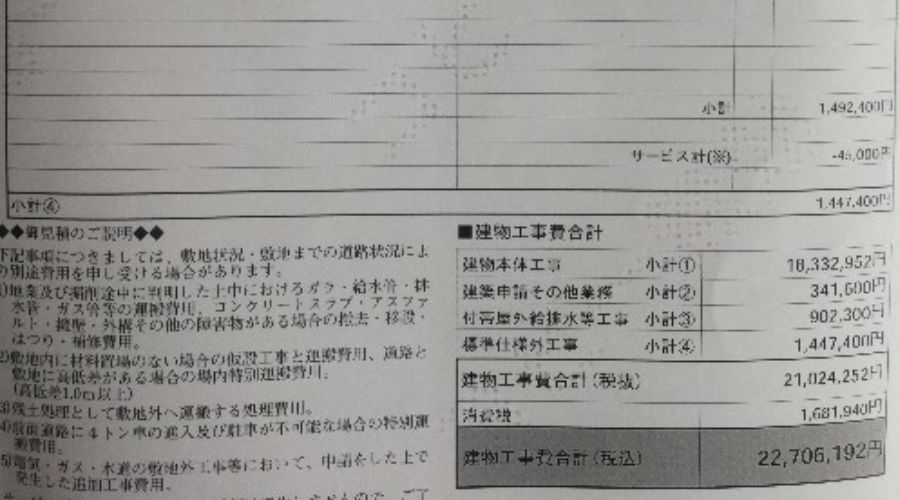 小計 1,492,400円
サービス計(※) -45,000円
小計④ 1,447,400円
◆◆御見積のご説明◆◆
下記事項につきましては、敷地状況・敷地までの道路状況によ
り別途費用を申し受ける場合があります。
1)地業及び掘削途中に判明した土中におけるガラ・給水管・排
水管・ガス管等の運搬費用、コンクリートスラブ・アスファ
ルト・擁壁・外構その他の障害物がある場合の撤去・移設・
はつり・補修費用。
2)敷地内に材料置場のない場合の仮設工事と運搬費用、道路と
敷地に高低差がある場合の場内特別運搬費用。
(高低差1.0m以上)
3)残土処理として敷地外へ運搬する処理費用。
4)前面道路に4トン車の進入及び駐車が不可能な場合の特別運
搬費用。
5)電気・ガス・水道の敷地外工事等において、申請をした上で
発生した追加工事費用。
■建物工事費合計
建物本体工事 小計① 18,332,952円
建築申請その他業務 小計② 341,600円
付帯屋外給排水等工事 小計③ 902,300円
標準仕様外工事 小計④ 1,447,400円
建物工事費合計(税抜) 21,024,252円
消費税 1,681,940円
建物工事費合計(税込) 22,706,192円